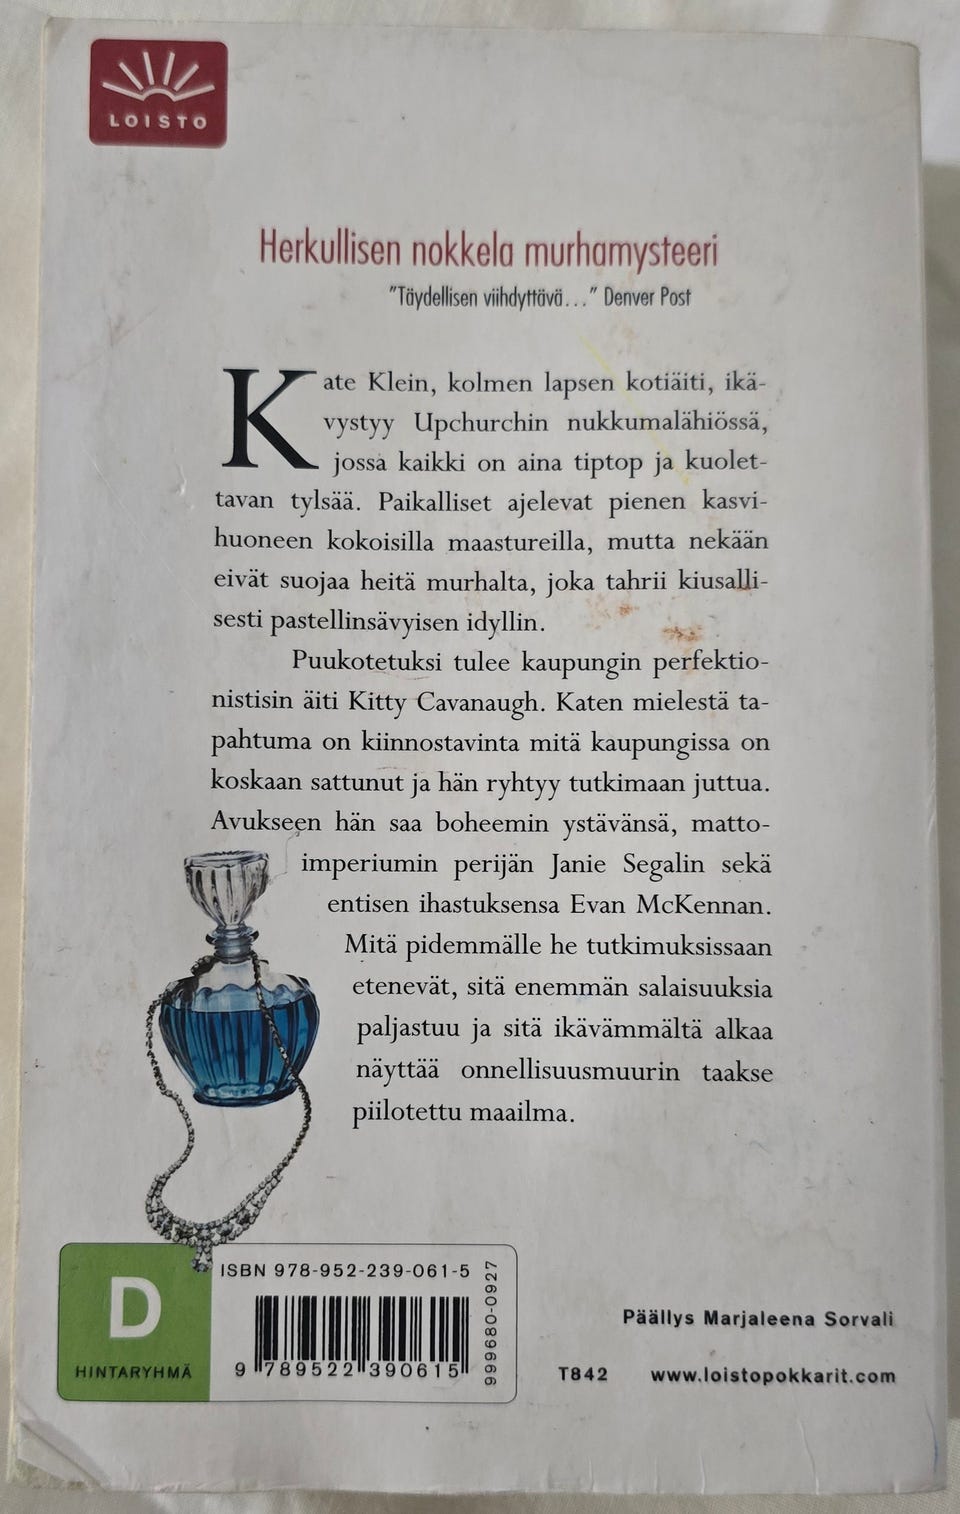 LOISTO
Herkullisen nokkela murhamysteeri
"Täydellisen viihdyttävä..." Denver Post
Kate Klein, kolmen lapsen kotiäiti, ikä-
vystyy Upchurchin nukkumalähiössä,
jossa kaikki on aina tiptop ja kuolet-
tavan tylsää. Paikalliset ajelevat pienen kasvi-
huoneen kokoisilla maastureilla, mutta nekään
eivät suojaa heitä murhalta, joka tahrii kiusalli-
sesti pastellinsävyisen idyllin.
Puukotetuksi tulee kaupungin perfektio-
nistisin äiti Kitty Cavanaugh. Katen mielestä ta-
pahtuma on kiinnostavinta mitä kaupungissa on
koskaan sattunut ja hän ryhtyy tutkimaan juttua.
Avukseen hän saa boheemin ystävänsä, matto-
imperiumin perijän Janie Segalin sekä
entisen ihastuksensa Evan McKennan.
Mitä pidemmälle he tutkimuksissaan
etenevät, sitä enemmän salaisuuksia
paljastuu ja sitä ikävämmältä alkaa
näyttää onnellisuusmuurin taakse
piilotettu maailma.
D
HINTARYHMÄ
ISBN 978-952-239-061-5
9 789522 390615
999680-0927
Päällys Marjaleena Sorvali
T842 www.loistopokkarit.com